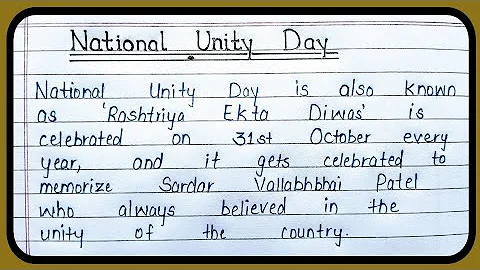 National Unity Day
National Unity Day is also known
as 'Rashtriya Ekta Diwas' is
celebrated on 31st October every
year, and it gets celebrated to
memorize Sardar Vallabhbhai Patel
who always believed in the
unity of the country.